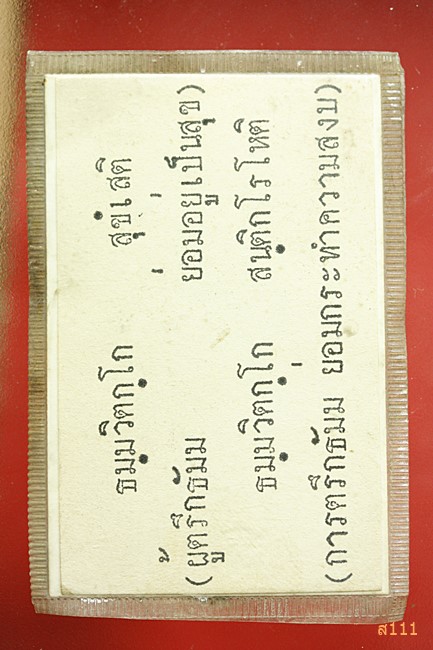 ธมฺมวิตกฺโก สุขํ เสติ
(ผู้ตรึกธัมม ย่อมอยู่เป็นสุข)
ธมฺมวิตกฺโก สนฺติกโรโหติ
(การตรึกธัมม ย่อมกระทำความสงบ)
ส111